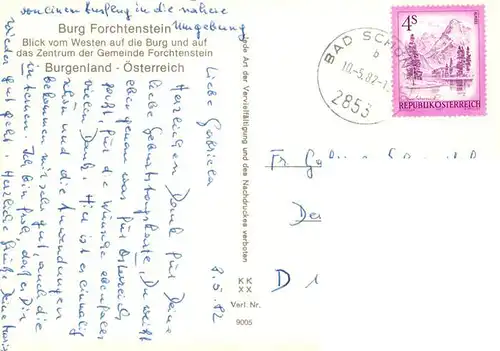 von einem Ausflug in die nähere
Umgebung
Burg Forchtenstein
Blick vom Westen auf die Burg und auf
das Zentrum der Gemeinde Forchtenstein
Burgenland - Österreich
8.5.82
Liebe Gabriela
Herzlichen Dank für Deine
liebe Geburtstagskarte, Du weißt
eben genau was für Österreich
paßt, für die Wünsche ebenfalls
vielen Dank. Hier ist es einmalig
schön und die Anwendungen
bekommen mir sehr gut, auch die
in tonen. Ich bin froh, daß es Dir
wieder gut geht. Herzliche Grüße Deine
Jede Art der Vervielfältigung und des Nachdruckes verboten
KK
XX
Verl. Nr.
9005
BAD SCHÖN
b
10.-5.82-1
2853
4S
REPUBLIK ÖSTERREICH
Fr.
D